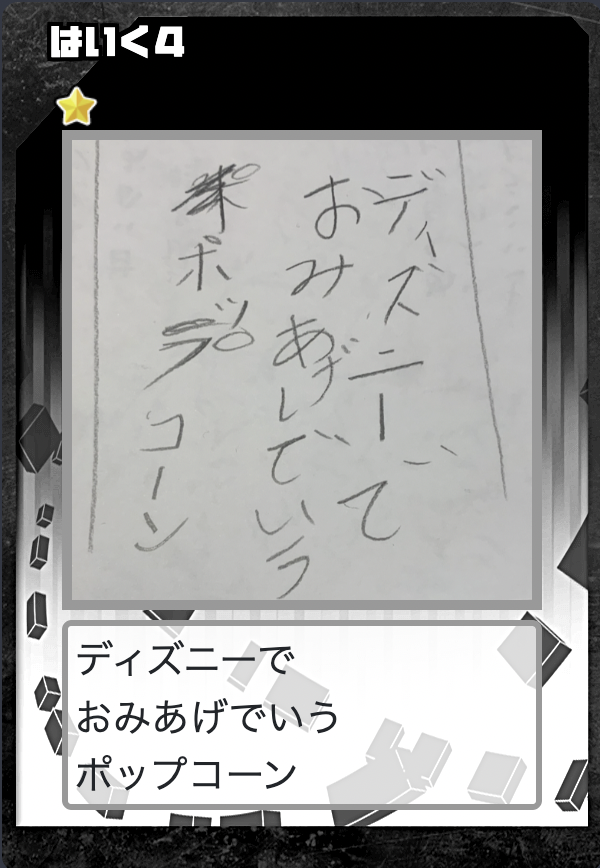 はいく4
ディズニーで
おみあげでいう
ポップコーン
ディズニーで
おみあげでいう
ポップコーン